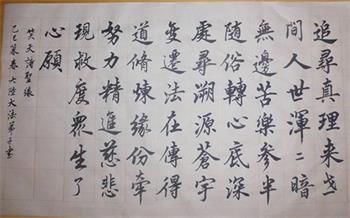 追尋真理来世
間人世渾〻暗
無邊苦樂参半
随俗轉心底深
處尋溯源蒼宇
变遷法在傳得
道脩煉緣份牽
努力精進慈悲
現救度眾生了
心願
文詩聖緣
己亥暮春大陸大法弟子書